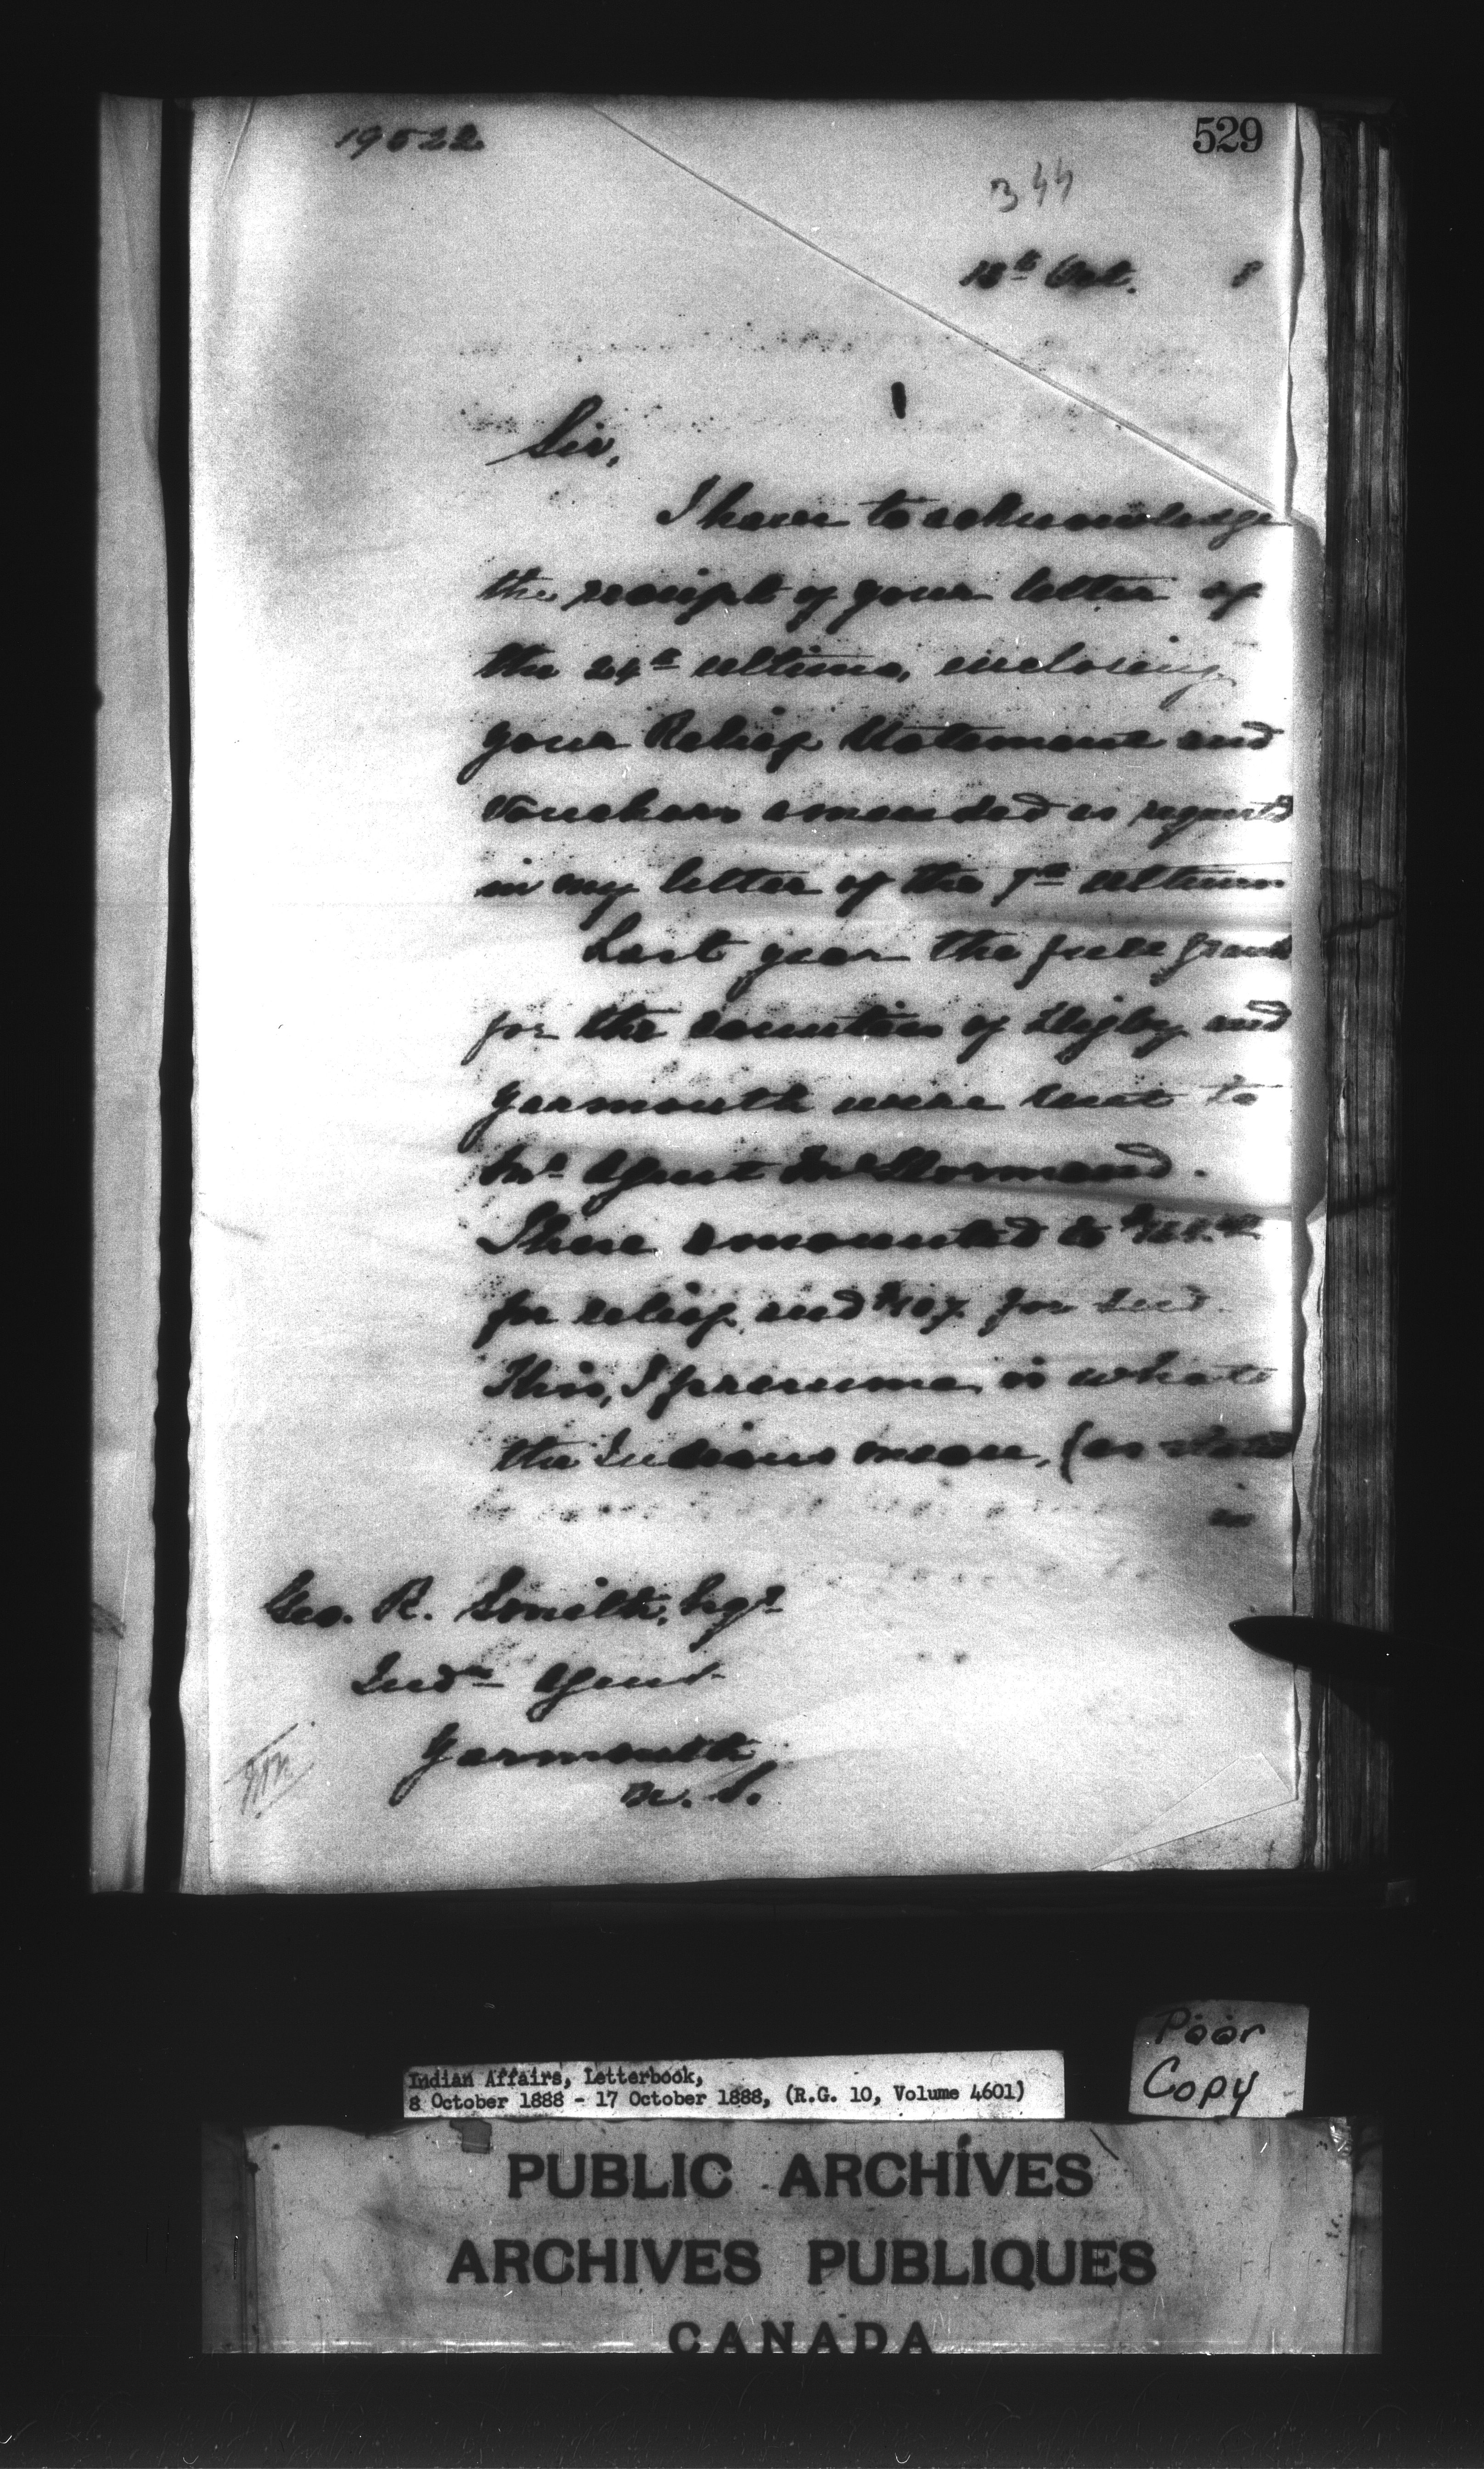 19522
529
344
Oct. 8
Sir,
I have to acknowledge
the receipt of your letter of
the 24th ultimo, enclosing
your Relief Statement and
Vouchers amended as
in my letter of the 7th ultimo
Last year the full grants
for the counties of Digby and
Yarmouth were sent to
Mr Agent McDormand.
These amounted to
for relief and $107 for seed.
This, I presume, is what
the Indians mean, (as stated
in
Geo. R. Smith, Esqr
Indn Agent
Yarmouth
N. S.
Poor
Copy
Indian Affairs, Letterbook,
8 October 1888 - 17 October 1888, (R.G. 10, Volume 4601)
PUBLIC ARCHIVES
ARCHIVES PUBLIQUES
CANADA